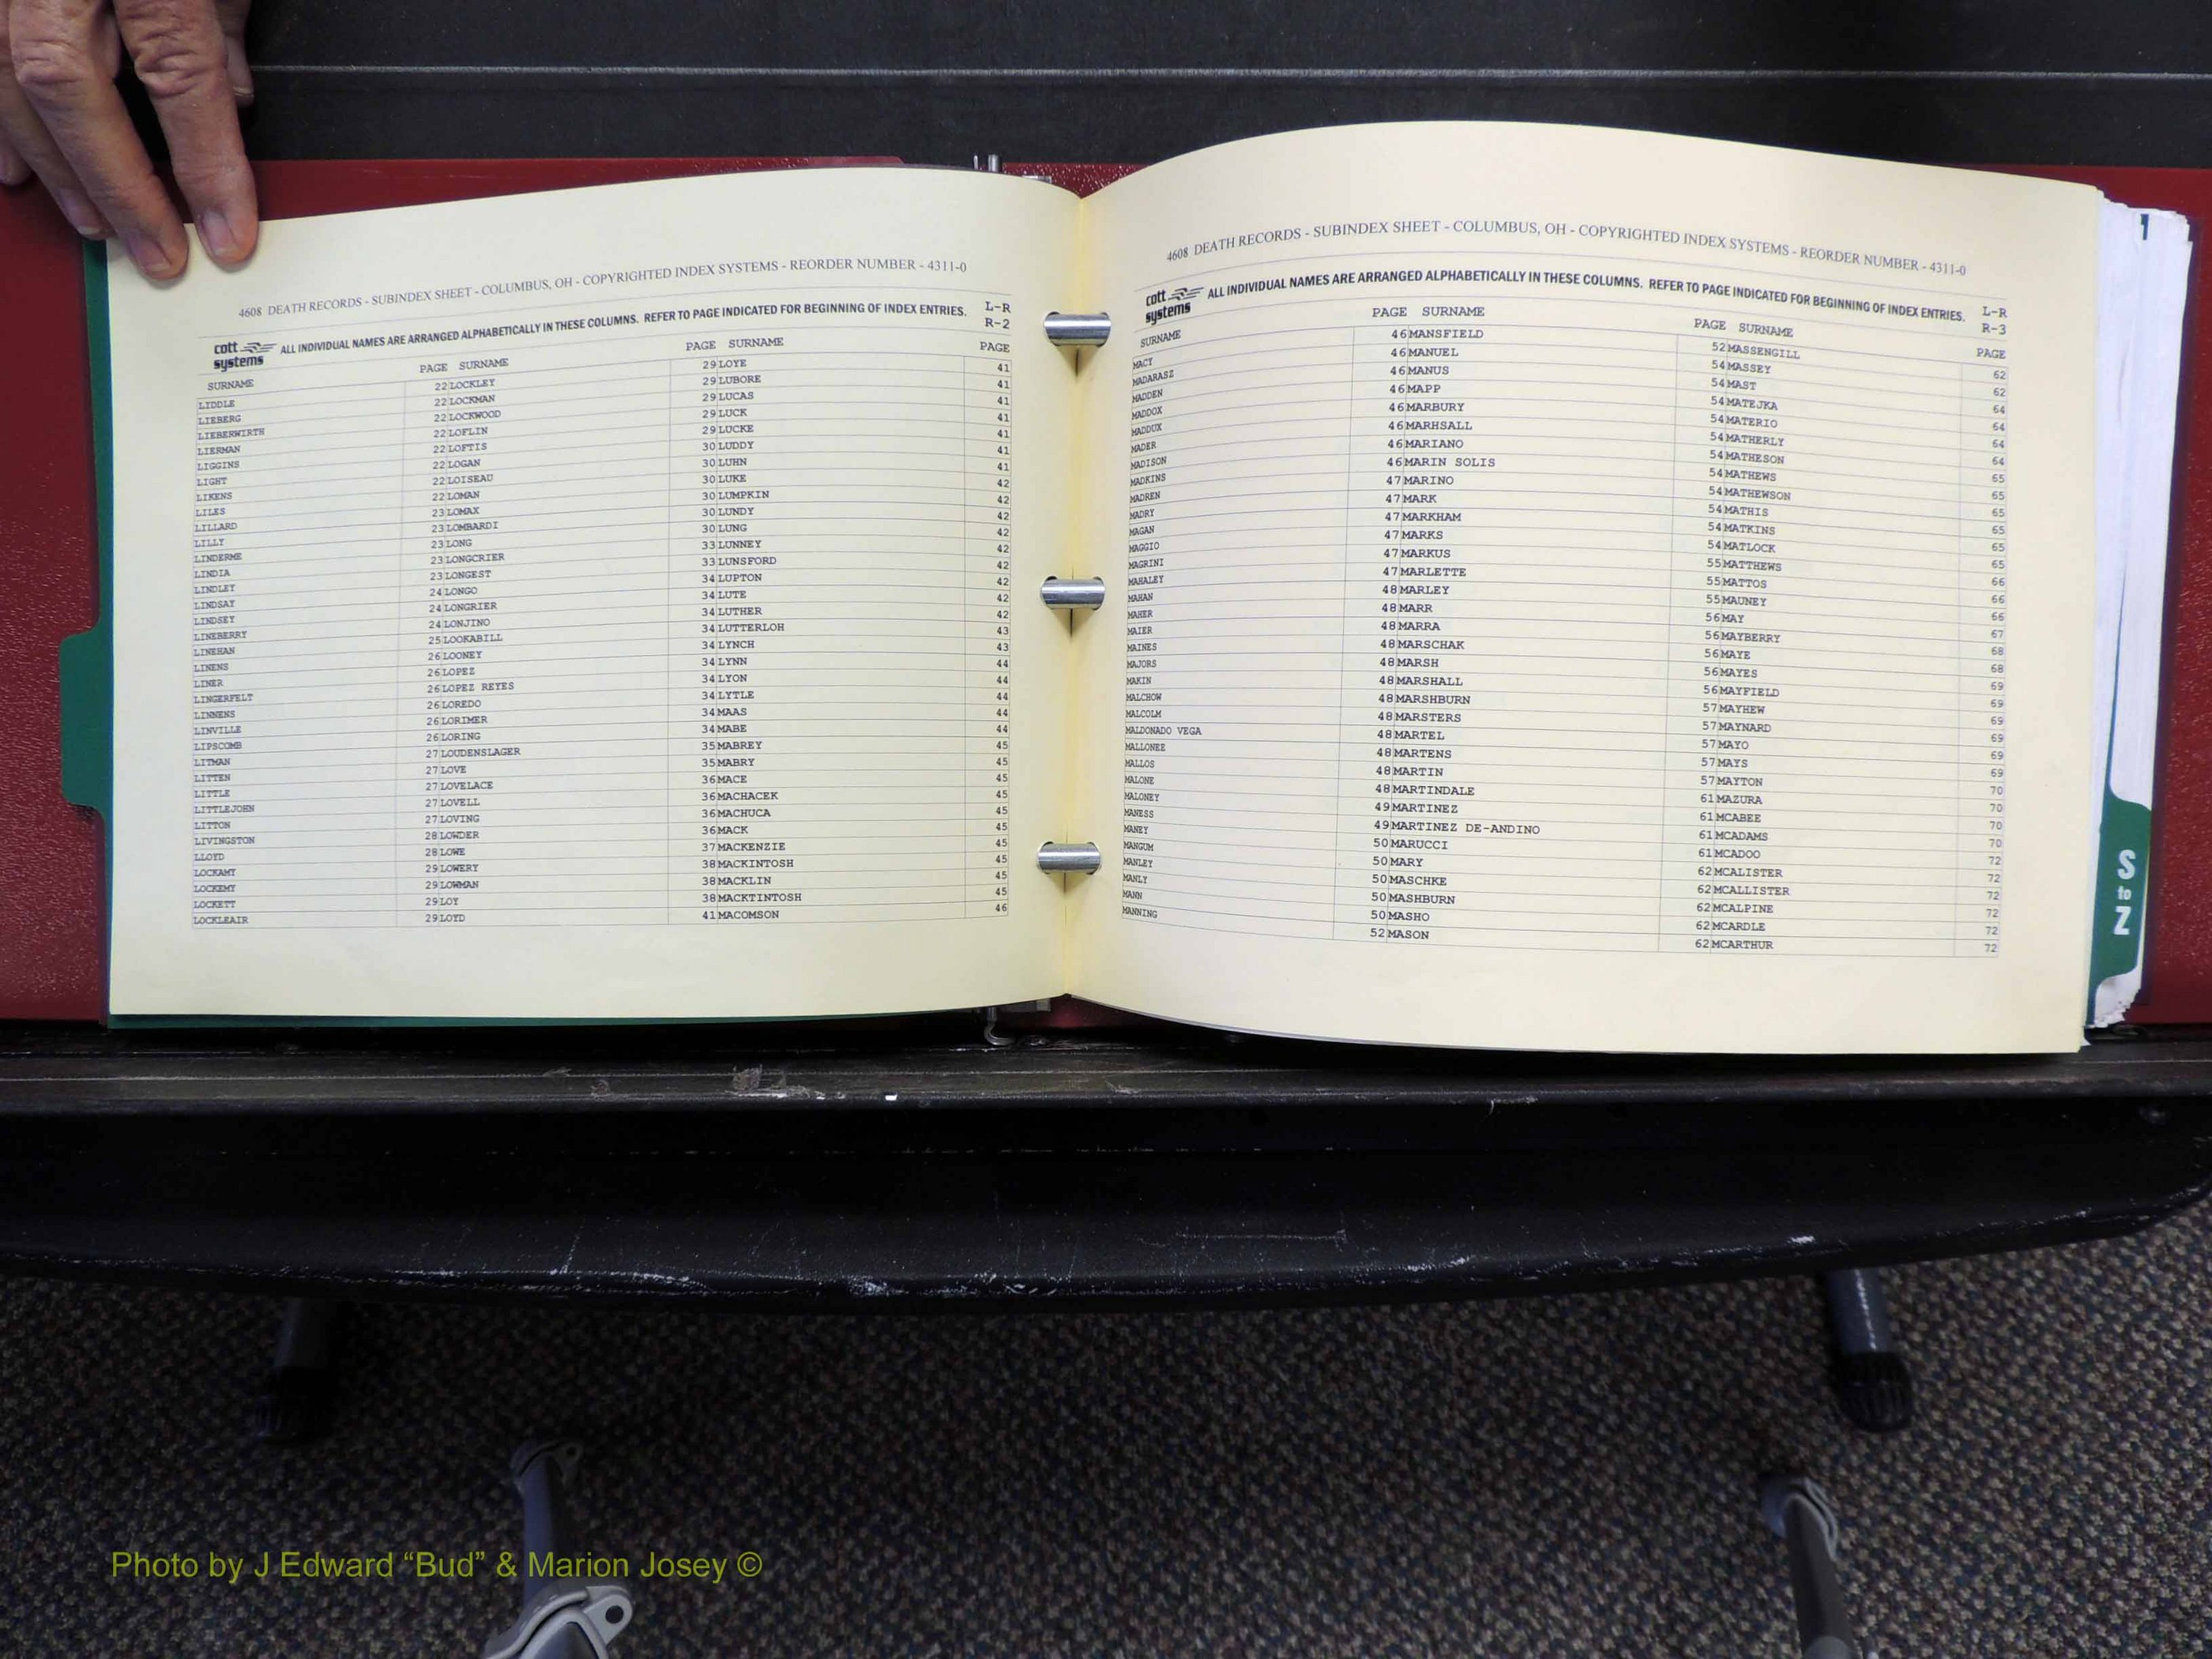 4608 DEATH RECORDS - SUBINDEX SHEET - COLUMBUS, OH - COPYRIGHTED INDEX SYSTEMS - REORDER NUMBER - 4311-0
cott systems ALL INDIVIDUAL NAMES ARE ARRANGED ALPHABETICALLY IN THESE COLUMNS. REFER TO PAGE INDICATED FOR BEGINNING OF INDEX ENTRIES. L-R R-2
SURNAME PAGE SURNAME PAGE SURNAME PAGE
LIDDLE 22 LOCKLEY 29 LOYE 41
LIEBERG 22 LOCKMAN 29 LUBORE 41
LIEBERWIRTH 22 LOCKWOOD 29 LUCAS 41
LIERMAN 22 LOFLIN 29 LUCK 41
LIGGINS 22 LOFTIS 29 LUCKE 41
LIGHT 22 LOGAN 30 LUDDY 41
LIKENS 22 LOISEAU 30 LUHN 41
LILES 22 LOMAN 30 LUKE 42
LILLARD 23 LOMAX 30 LUMPKIN 42
LILLY 23 LOMBARDI 30 LUNDY 42
LINDERME 23 LONG 30 LUNG 42
LINDIA 23 LONGCRIER 33 LUNNEY 42
LINDLEY 23 LONGEST 33 LUNSFORD 42
LINDSAY 24 LONGO 34 LUPTON 42
LINDSEY 24 LONGRIER 34 LUTE 42
LINEBERRY 24 LONJINO 34 LUTHER 42
LINEHAN 25 LOOKABILL 34 LUTTERLOH 43
LINENS 26 LOONEY 34 LYNCH 43
LINER 26 LOPEZ 34 LYNN 44
LINGERFELT 26 LOPEZ REYES 34 LYON 44
LINNENS 26 LOREDO 34 LYTLE 44
LINVILLE 26 LORIMER 34 MAAS 44
LIPSCOMB 26 LORING 34 MABE 44
LITMAN 27 LOUDENSLAGER 35 MABREY 45
LITTEN 27 LOVE 35 MABRY 45
LITTLE 27 LOVELACE 36 MACE 45
LITTLEJOHN 27 LOVELL 36 MACHACEK 45
LITTON 27 LOVING 36 MACHUCA 45
LIVINGSTON 28 LOWDER 36 MACK 45
LLOYD 28 LOWE 37 MACKENZIE 45
LOCKAMY 29 LOWERY 38 MACKINTOSH 45
LOCKEMY 29 LOWMAN 38 MACKLIN 45
LOCKETT 29 LOY 38 MACKTINTOSH 45
LOCKLEAIR 29 LOYD 41 MACOMSON 46
4608 DEATH RECORDS - SUBINDEX SHEET - COLUMBUS, OH - COPYRIGHTED INDEX SYSTEMS - REORDER NUMBER - 4311-0
cott systems ALL INDIVIDUAL NAMES ARE ARRANGED ALPHABETICALLY IN THESE COLUMNS. REFER TO PAGE INDICATED FOR BEGINNING OF INDEX ENTRIES. L-R R-3
SURNAME PAGE SURNAME PAGE SURNAME PAGE
MACY 46 MANSFIELD 52 MASSENGILL 62
MADARASZ 46 MANUEL 54 MASSEY 62
MADDEN 46 MANUS 54 MAST 64
MADDOX 46 MAPP 54 MATEJKA 64
MADDUX 46 MARBURY 54 MATERIO 64
MADER 46 MARHSALL 54 MATHERLY 64
MADISON 46 MARIANO 54 MATHESON 65
MADKINS 46 MARIN SOLIS 54 MATHEWS 65
MADREN 47 MARINO 54 MATHEWSON 65
MADRY 47 MARK 54 MATHIS 65
MAGAN 47 MARKHAM 54 MATKINS 65
MAGGIO 47 MARKS 54 MATLOCK 65
MAGRINI 47 MARKUS 55 MATTHEWS 66
MAHALEY 47 MARLETTE 55 MATTOS 66
MAHAN 48 MARLEY 55 MAUNEY 66
MAHER 48 MARR 56 MAY 67
MAIER 48 MARRA 56 MAYBERRY 68
MAINES 48 MARSCHAK 56 MAYE 68
MAJORS 48 MARSH 56 MAYES 69
MAKIN 48 MARSHALL 56 MAYFIELD 69
MALCHOW 48 MARSHBURN 57 MAYHEW 69
MALCOLM 48 MARSTERS 57 MAYNARD 69
MALDONADO VEGA 48 MARTEL 57 MAYO 69
MALLONEE 48 MARTENS 57 MAYS 69
MALLOS 48 MARTIN 57 MAYTON 70
MALONE 48 MARTINDALE 61 MAZURA 70
MALONEY 49 MARTINEZ 61 MCABEE 70
MANESS 49 MARTINEZ DE-ANDINO 61 MCADAMS 70
MANEY 50 MARUCCI 61 MCADOO 72
MANGUM 50 MARY 62 MCALISTER 72
MANLEY 50 MASCHKE 62 MCALLISTER 72
MANLY 50 MASHBURN 62 MCALPINE 72
MANN 50 MASHO 62 MCARDLE 72
MANNING 52 MASON 62 MCARTHUR 72
S to Z
Photo by J Edward “Bud” & Marion Josey ©